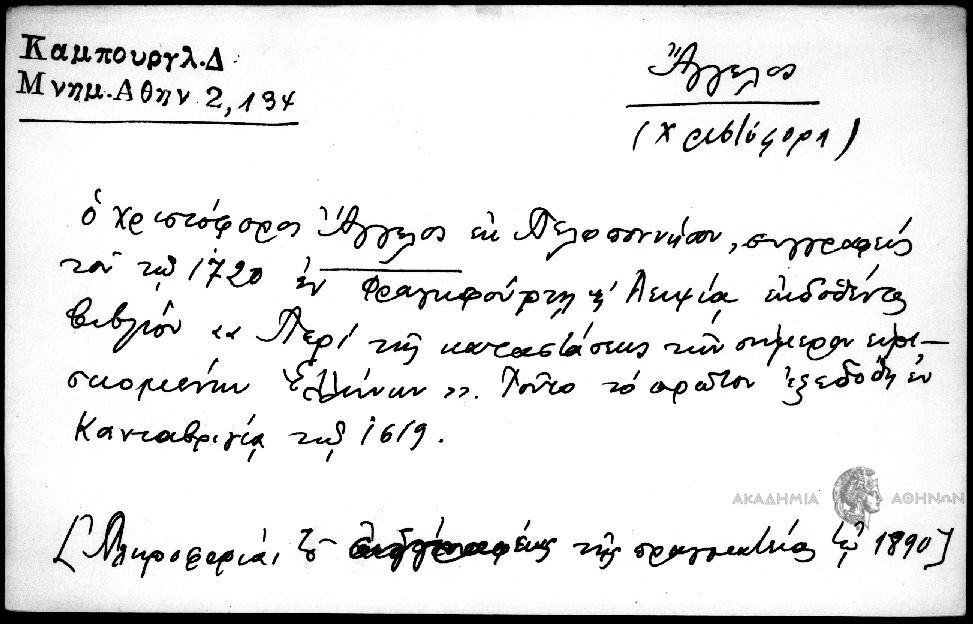 Καμπουργλ. Δ
Μνημ. Αθην 2, 134
Ἄγγελος
(Χριστόφορη)
ὁ Χριστόφορος Ἄγγελος ἐκ Πελοποννήσου, συγγραφεύς
τοῦ τῷ 1720 ἐν Φραγκφούρτῃ ἐ Λειψίᾳ ἐκδοθέντος
βιβλίου «Περί τῆς καταστάσεως τῶν σήμερον εὑρι-
σκομένων Ἑλλήνων». Τοῦτο τό πρῶτον ἐξεδόθη ἐν
Κανταβριγίᾳ τῷ 1619.
ΑΚΑΔΗΜΙΑ ΑΘΗΝΩΝ
[Πληροφορία, τῆς πραγματείας τῷ 1890]